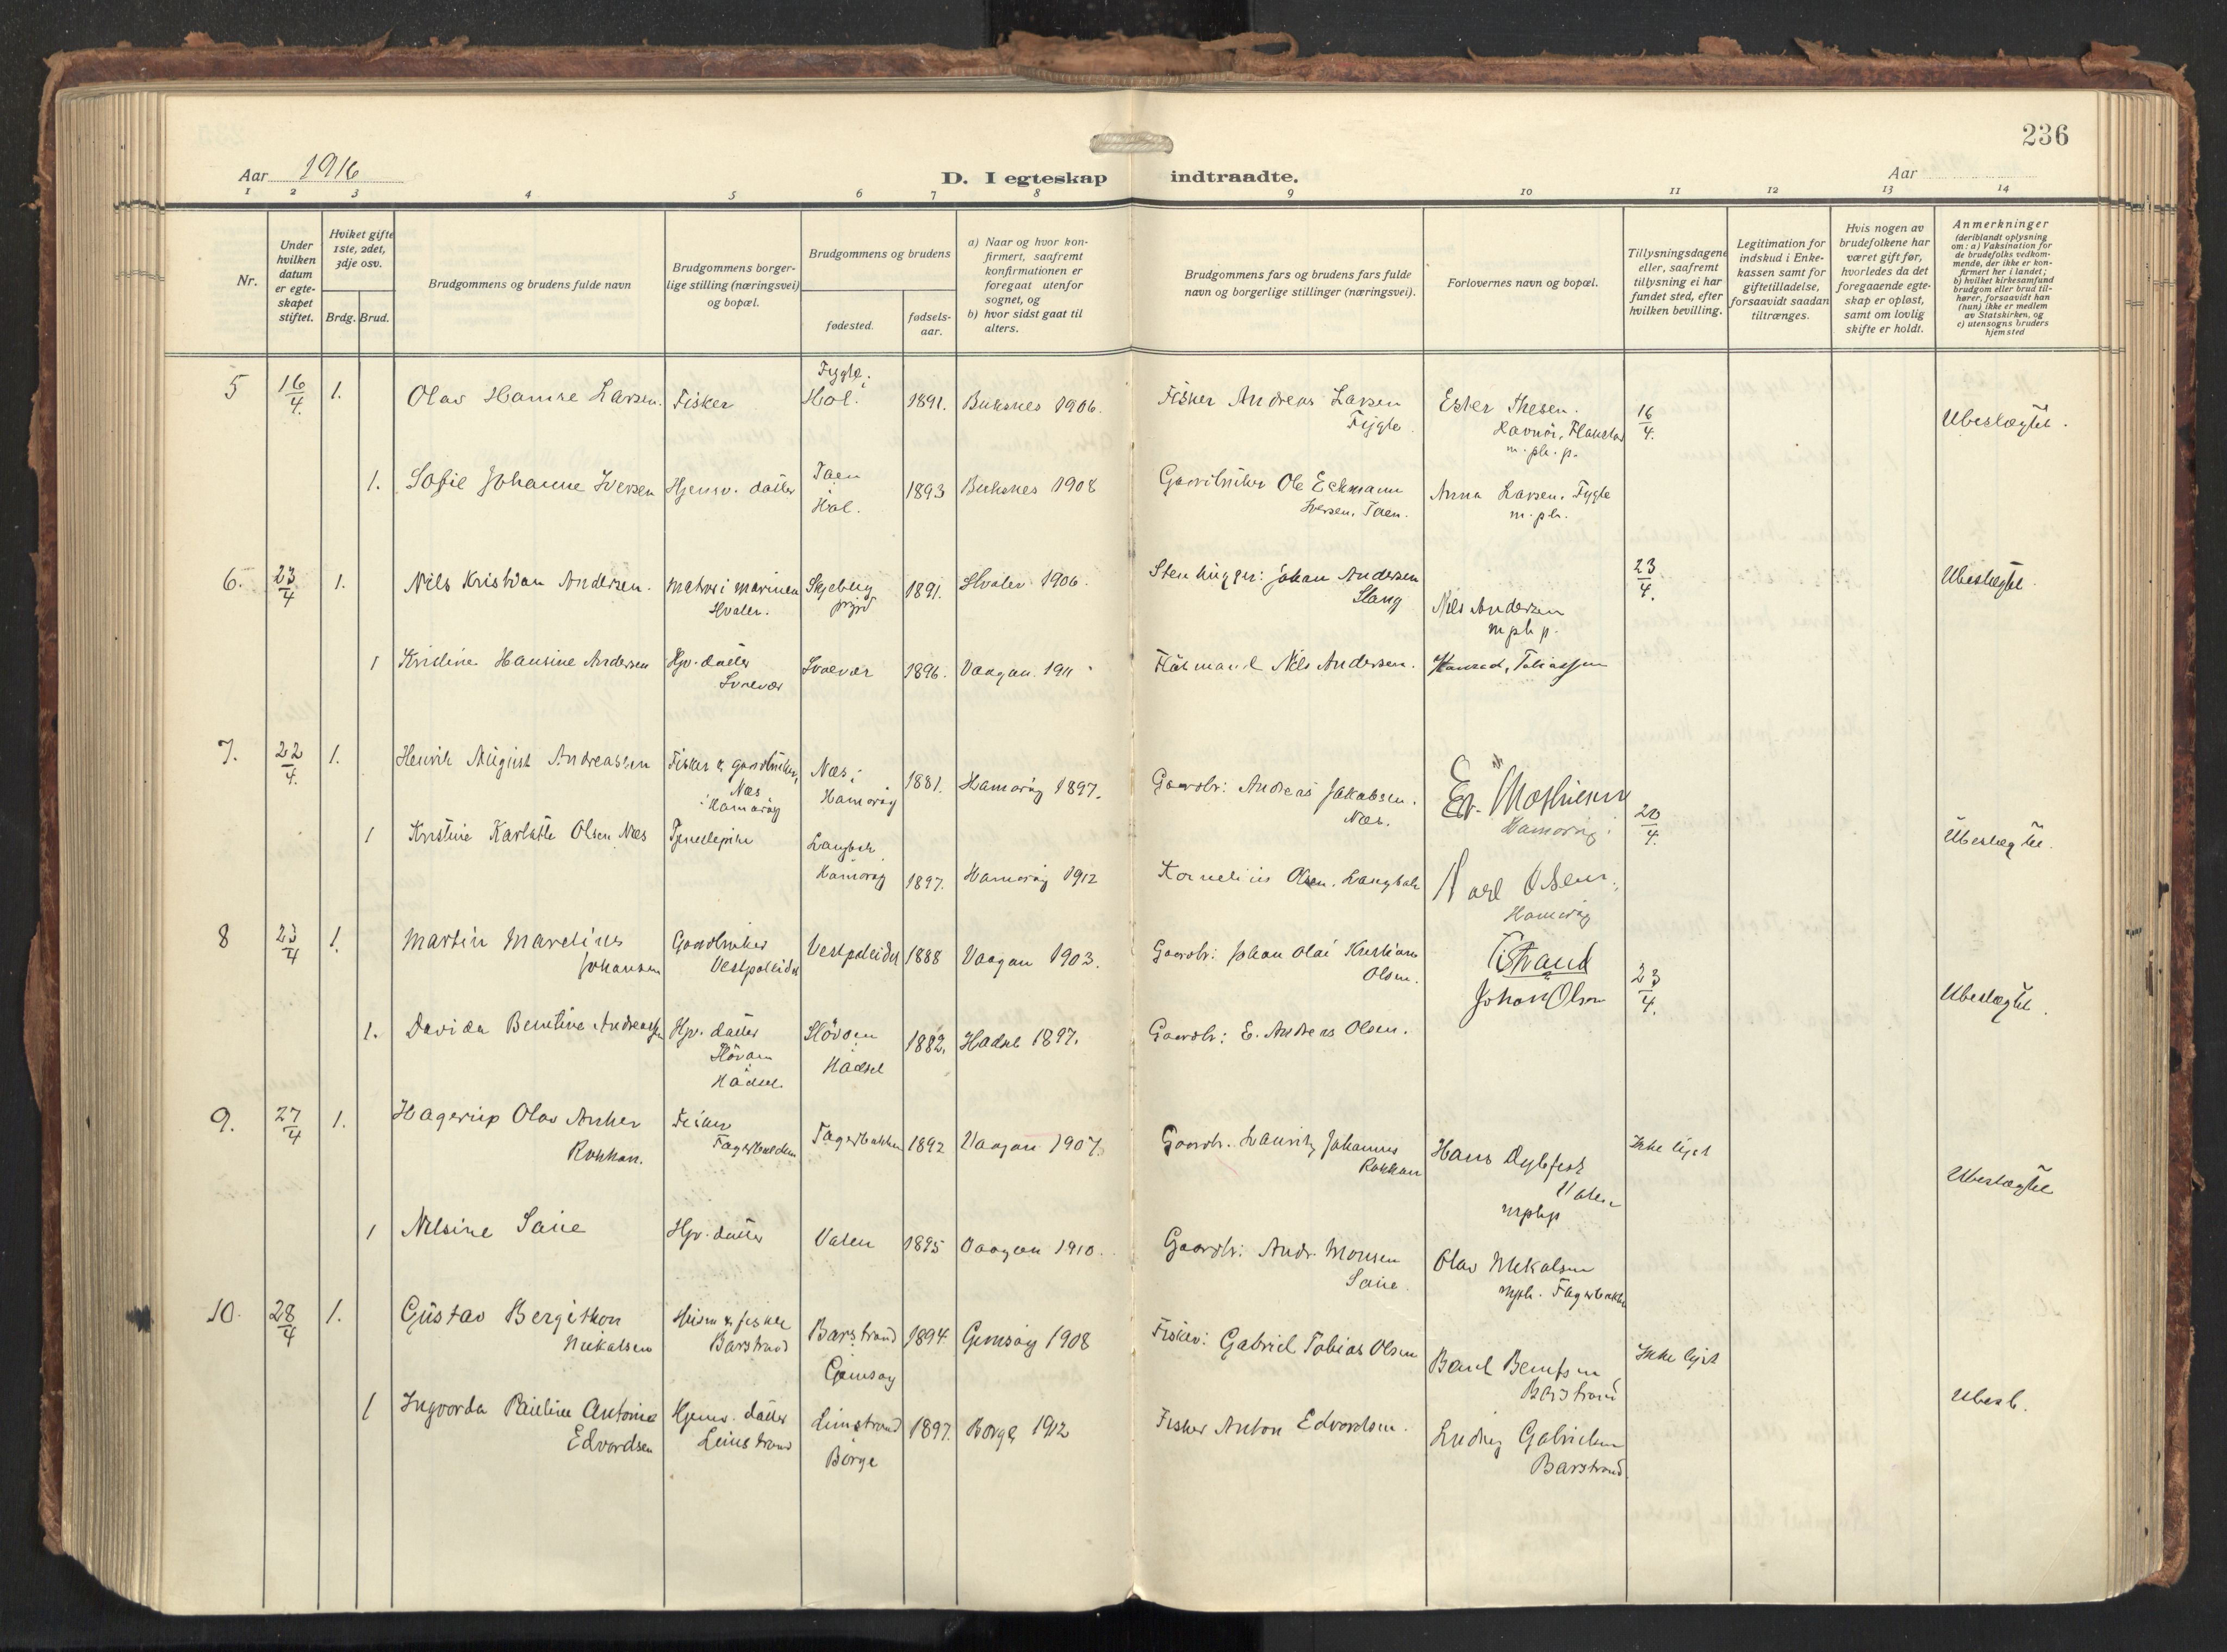 236
Aar 1916
D. I egteskap indtraadte.
Aar
1 2 3 4 5 6 7 8 9 10 11 12 13 14
Nr.
Under
hvilken
datum
er egte-
skapet
stiftet.
Hviket gifte
1ste, 2det,
3dje osv.
Brdg. Brud.
Brudgommens og brudens fulde navn
Brudgommens borger-
lige stilling (næringsvei)
og bopæl.
Brudgommens og brudens
fødested.
fødsels-
aar.
a) Naar og hvor kon-
firmert, saafremt
konfirmationen er
foregaat utenfor
sognet, og
b) hvor sidst gaat til
alters.
Brudgommens fars og brudens fars fulde
navn og borgerlige stillinger (næringsvei).
Forlovernes navn og bopæl.
Tillysningsdagene
eller, saafremt
tillysning ei har
fundet sted, efter
hvilken bevilling.
Legitimation for
indskud i Enke-
kassen samt for
giftetilladelse,
forsaavidt saadan
tiltrænges.
Hvis nogen av
brudefolkene har
været gift før,
hvorledes da det
foregaaende egte-
skap er opløst,
samt om lovlig
skifte er holdt.
Anmerkninger
(deriblandt oplysning
om: a) Vaksination for
de brudefolks vedkom-
mende, der ikke er kon-
firmert her i landet;
b) hvilket kirkesamfund
brudgom eller brud til-
hører, forsaavidt han
(hun) ikke er medlem
av Statskirken, og
c) utensogns bruders
hjemsted
5 16/4. 1. Olav Hamre Larsen. Fisker
Fygle,
Hol. 1891. Buksnes 1906.
Fisker Andreas Larsen
Fygle.
Ester Thesen.
m.ph.p.
16/4.
Ubeslægtet.
1. Sofie Johanne Iversen Hjemv. datter
Taen
Hol. 1893 Buksnes 1908
Gaardbruker Ole Eckmann
Iversen, Taen.
Anna Larsen. Fygle
m.ph.
6. 23/4 1. Nils Kristian Andersen. Matros i marinen
Hvaler.
Skjeberg
1891. Hvaler 1906.
Stenhugger: Johan Andersen
Nils Andersen
mphp.
23/4.
Ubeslægtet
1 Kristine Hansine Andersen Hjv. datter
Svolvær
Svolvær 1896. Vaagan 1911
Nils Andersen.
7. 22/4. 1. Henrik August Andreassen Fisker & gaardbruker,
Næs
i Hamarøy
Næs i
Hamarøy 1881. Hamarøy 1897.
Gaardbr: Andreas Jakobsen.
Næs.
Hamarøy
20/4.
Ubeslægtet.
1 Kristine Olsen Næs Tjenestepike
Hamarøy 1897. Hamarøy 1912
Kornelius Olsen.
Karl Olsen,
Hamarøy
8 23/4 1. Martin Marelius
Johansen
Gaardbruker
Vestpoleidet
Vestpoleidet 1888 Vaagan 1903.
Gaardbr: Johan Olai Kristian
Olsen.
Strand
Johan Olsen
23/4.
Ubeslægtet.
1. Davida Bentine Andreassen Hjv. datter
Hadsel
Hadsel 1882. Hadsel 1897.
Gaardbr: E. Andreas Olsen.
9. 27/4 1. Hagerup Olav Anker
Rokkan.
Fisker
Fagerbakken
Fagerbakken 1892 Vaagan 1907.
Gaardbr. Lauritz Johannes
Rokkan
Hans Dybfest
Valen
mphp
Ikke lyst
Ubeslægtet
1 Nilsine Saue Hjv. datter Valen 1895 Vaagan 1910.
Gaardbr: Andr. Monsen
Saue.
Olav Mikalsen
mph. Fagerbakken
10. 28/4 1. Gustav Bergithon
Mikalsen
fisker
Barstrand
Barstrand
Gimsøy 1894 Gimsøy 1908
Fisker: Gabriel Tobias Olsen
Barstrand
Ikke lyst
Ubesl.
1 Ingvorda Pauline Antonie
Edvardsen
Hjemv. datter
Limstrand
Limstrand
Borge 1897. Borge 1912
Fisker Anton Edvardsen.
Ludvig Gabrielsen
Barstrand